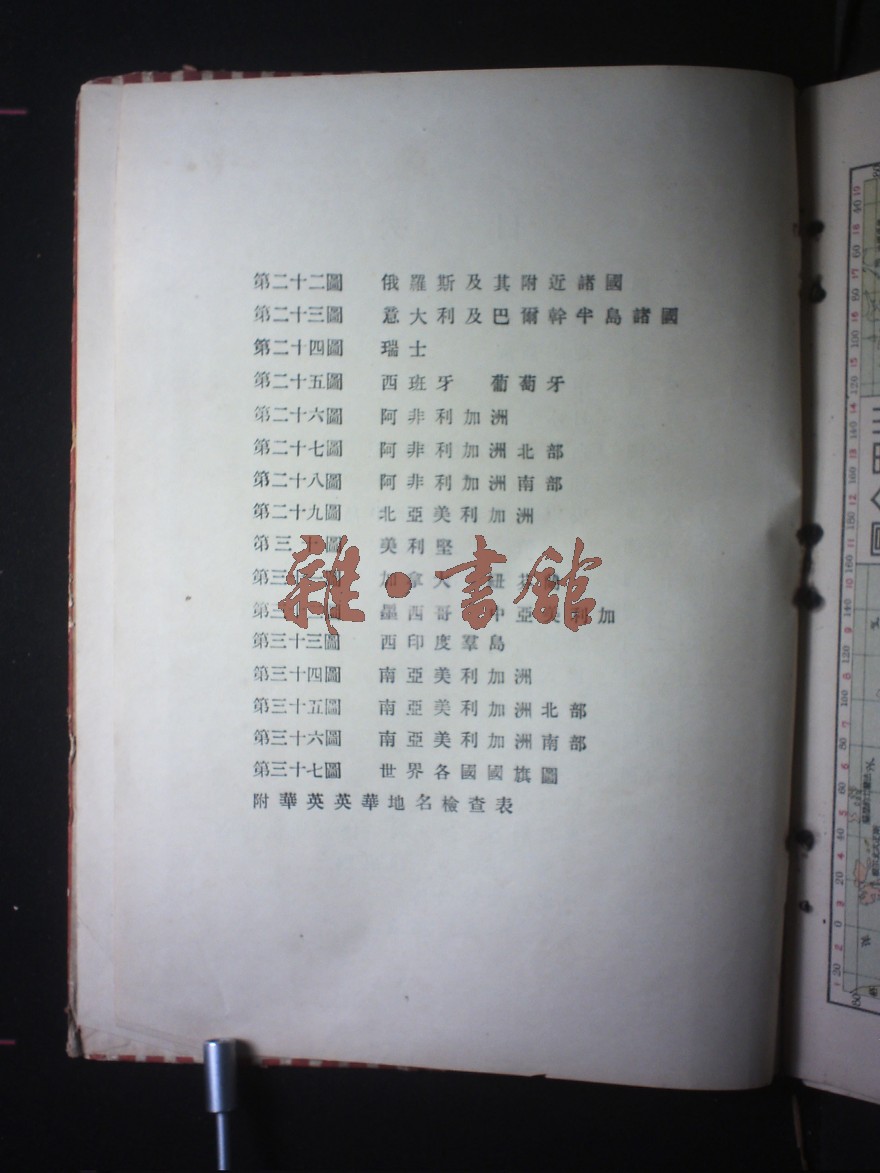 第二十二圖 俄羅斯及其附近諸國
第二十三圖 意大利及巴爾幹半島諸國
第二十四圖 瑞士
第二十五圖 西班牙 葡萄牙
第二十六圖 阿非利加洲
第二十七圖 阿非利加洲北部
第二十八圖 阿非利加洲南部
第二十九圖 北亞美利加洲
第三十圖 美利堅
第三十一圖 加拿大 紐芬
第三十二圖 墨西哥 中亞美利加
第三十三圖 西印度羣島
第三十四圖 南亞美利加洲
第三十五圖 南亞美利加洲北部
第三十六圖 南亞美利加洲南部
第三十七圖 世界各國國旗圖
附華英英華地名檢查表
雜·書館